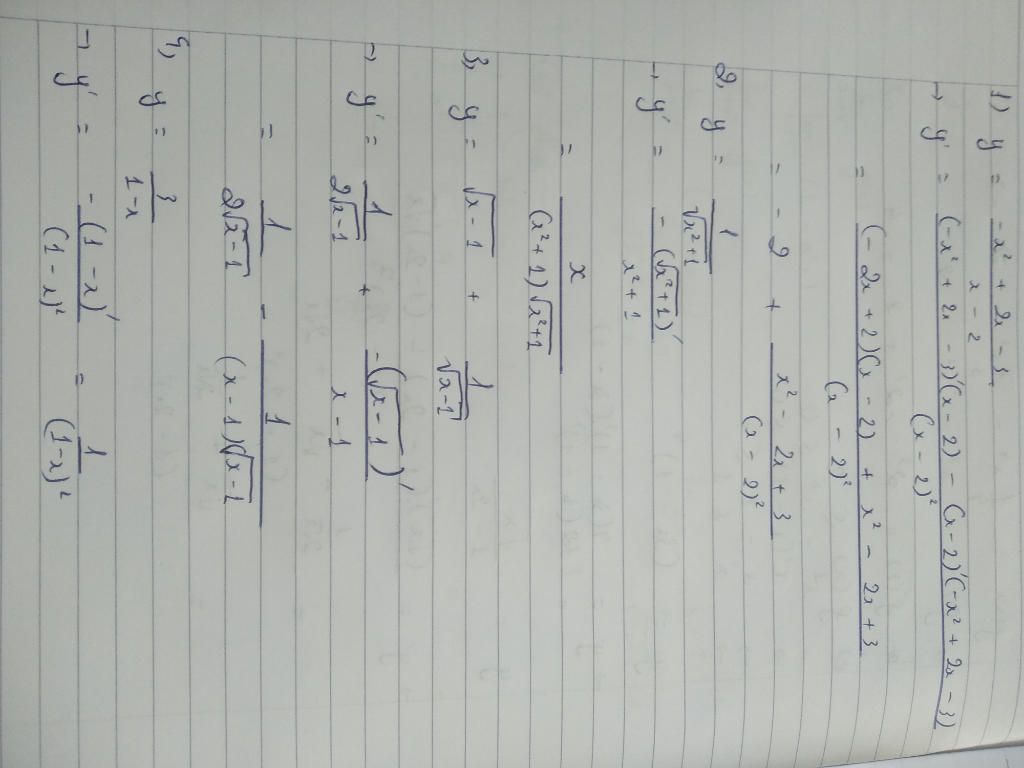 1) y = (-x² + 2x - 3)/(x - 2)
→ y' = ((-x² + 2x - 3)'(x - 2) - (x - 2)'(-x² + 2x - 3))/(x - 2)²
= ((-2x + 2)(x - 2) + x² - 2x + 3)/(x - 2)²
= -2 + (x² - 2x + 3)/(x - 2)²
2, y = 1/√(x²+1)
→ y' = - (√(x²+1))'/(x² + 1)
= x/((x² + 1)√(x²+1))
3, y = √(x - 1) + 1/√(x-1)
→ y' = 1/(2√(x-1)) + -(√(x-1))'/(x - 1)
= 1/(2√(x-1)) - 1/((x - 1)√(x-1))
4, y = 3/(1-x)
→ y' = -(1 - x)'/(1 - x)² = 1/(1-x)²